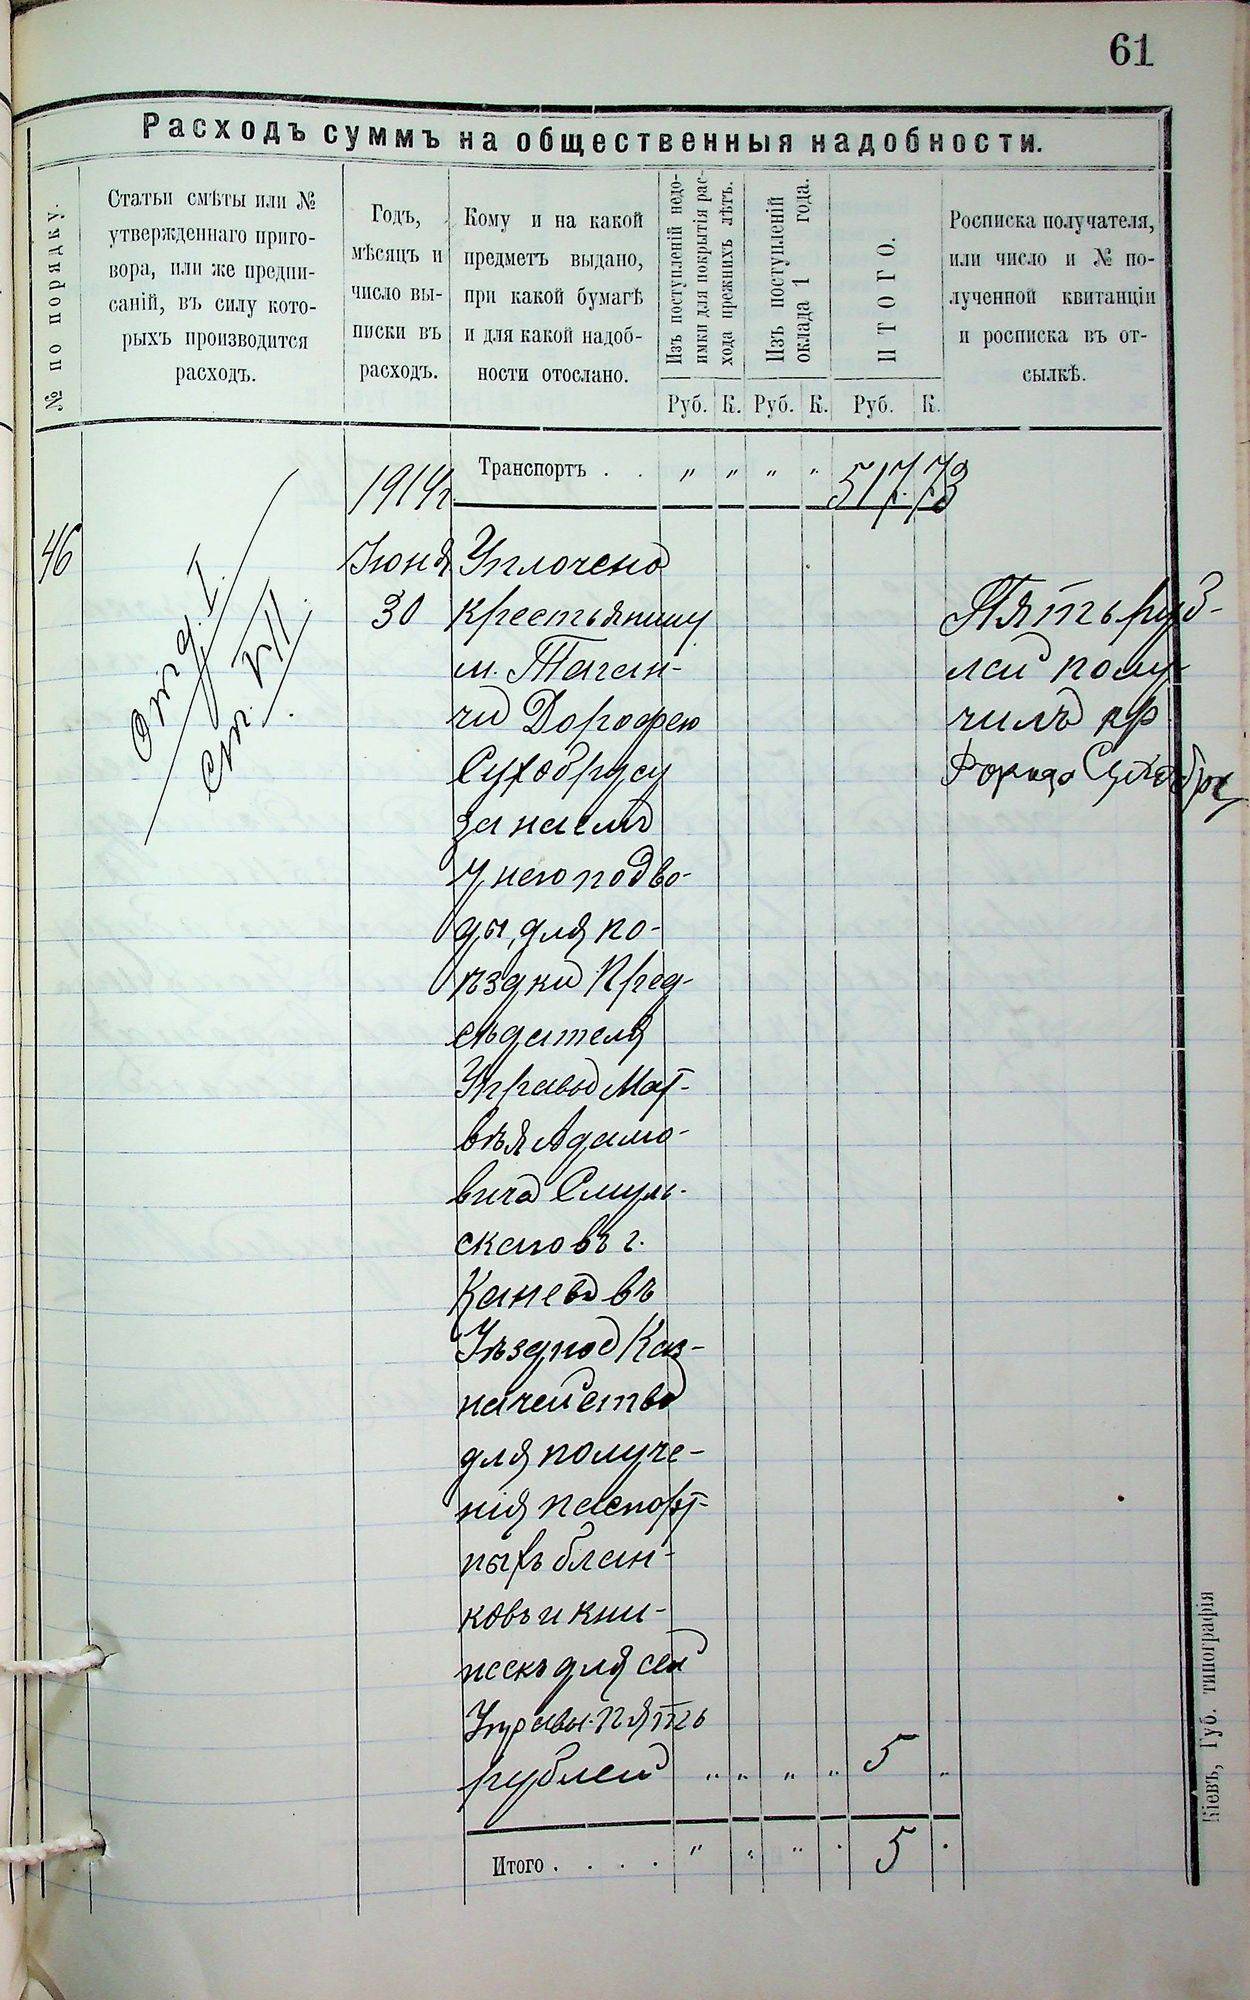 61
Расходъ суммъ на общественныя надобности.
№ по порядку.
Статьи смѣты или №
утвержденнаго приго-
вора, или же предпи-
саній, въ силу кото-
рыхъ производится
расходъ.
Годъ,
мѣсяцъ и
число вы-
писки въ
расходъ.
Кому и на какой
предметъ выдано,
при какой бумагѣ
и для какой надоб-
ности отослано.
Изъ поступленій недо-
имки для покрытія рас-
хода прежнихъ лѣтъ.
Изъ поступленій
оклада 1 года.
ИТОГО.
Росписка получателя,
или число и № по-
лученной квитанціи
и росписка въ от-
сылкѣ.
Руб. К. Руб. К. Руб. К.
Транспортъ . . " " " " 517. 73
1914г.
46
Отд. I.
Ст. VII.
Іюня
30
Уплочено
крестьянину
м. Таган-
чи Дорофею
Сухобрусу
за наемъ
у него подво-
ды, для по-
ѣздки Пред-
сѣдателя
Управы Мат-
вѣя Адамо-
вича Смуль-
скаго въ г.
Каневъ въ
Уѣздное Каз-
начейство
для получе-
нія паспорт-
ныхъ блан-
ковъ и кни-
жекъ для сей
Управы. Пять
рублей " " " " 5 "
Пять руб-
лей полу-
чилъ кр
Итого . . . . " " " " 5 "
Кіевъ, Губ. типографія